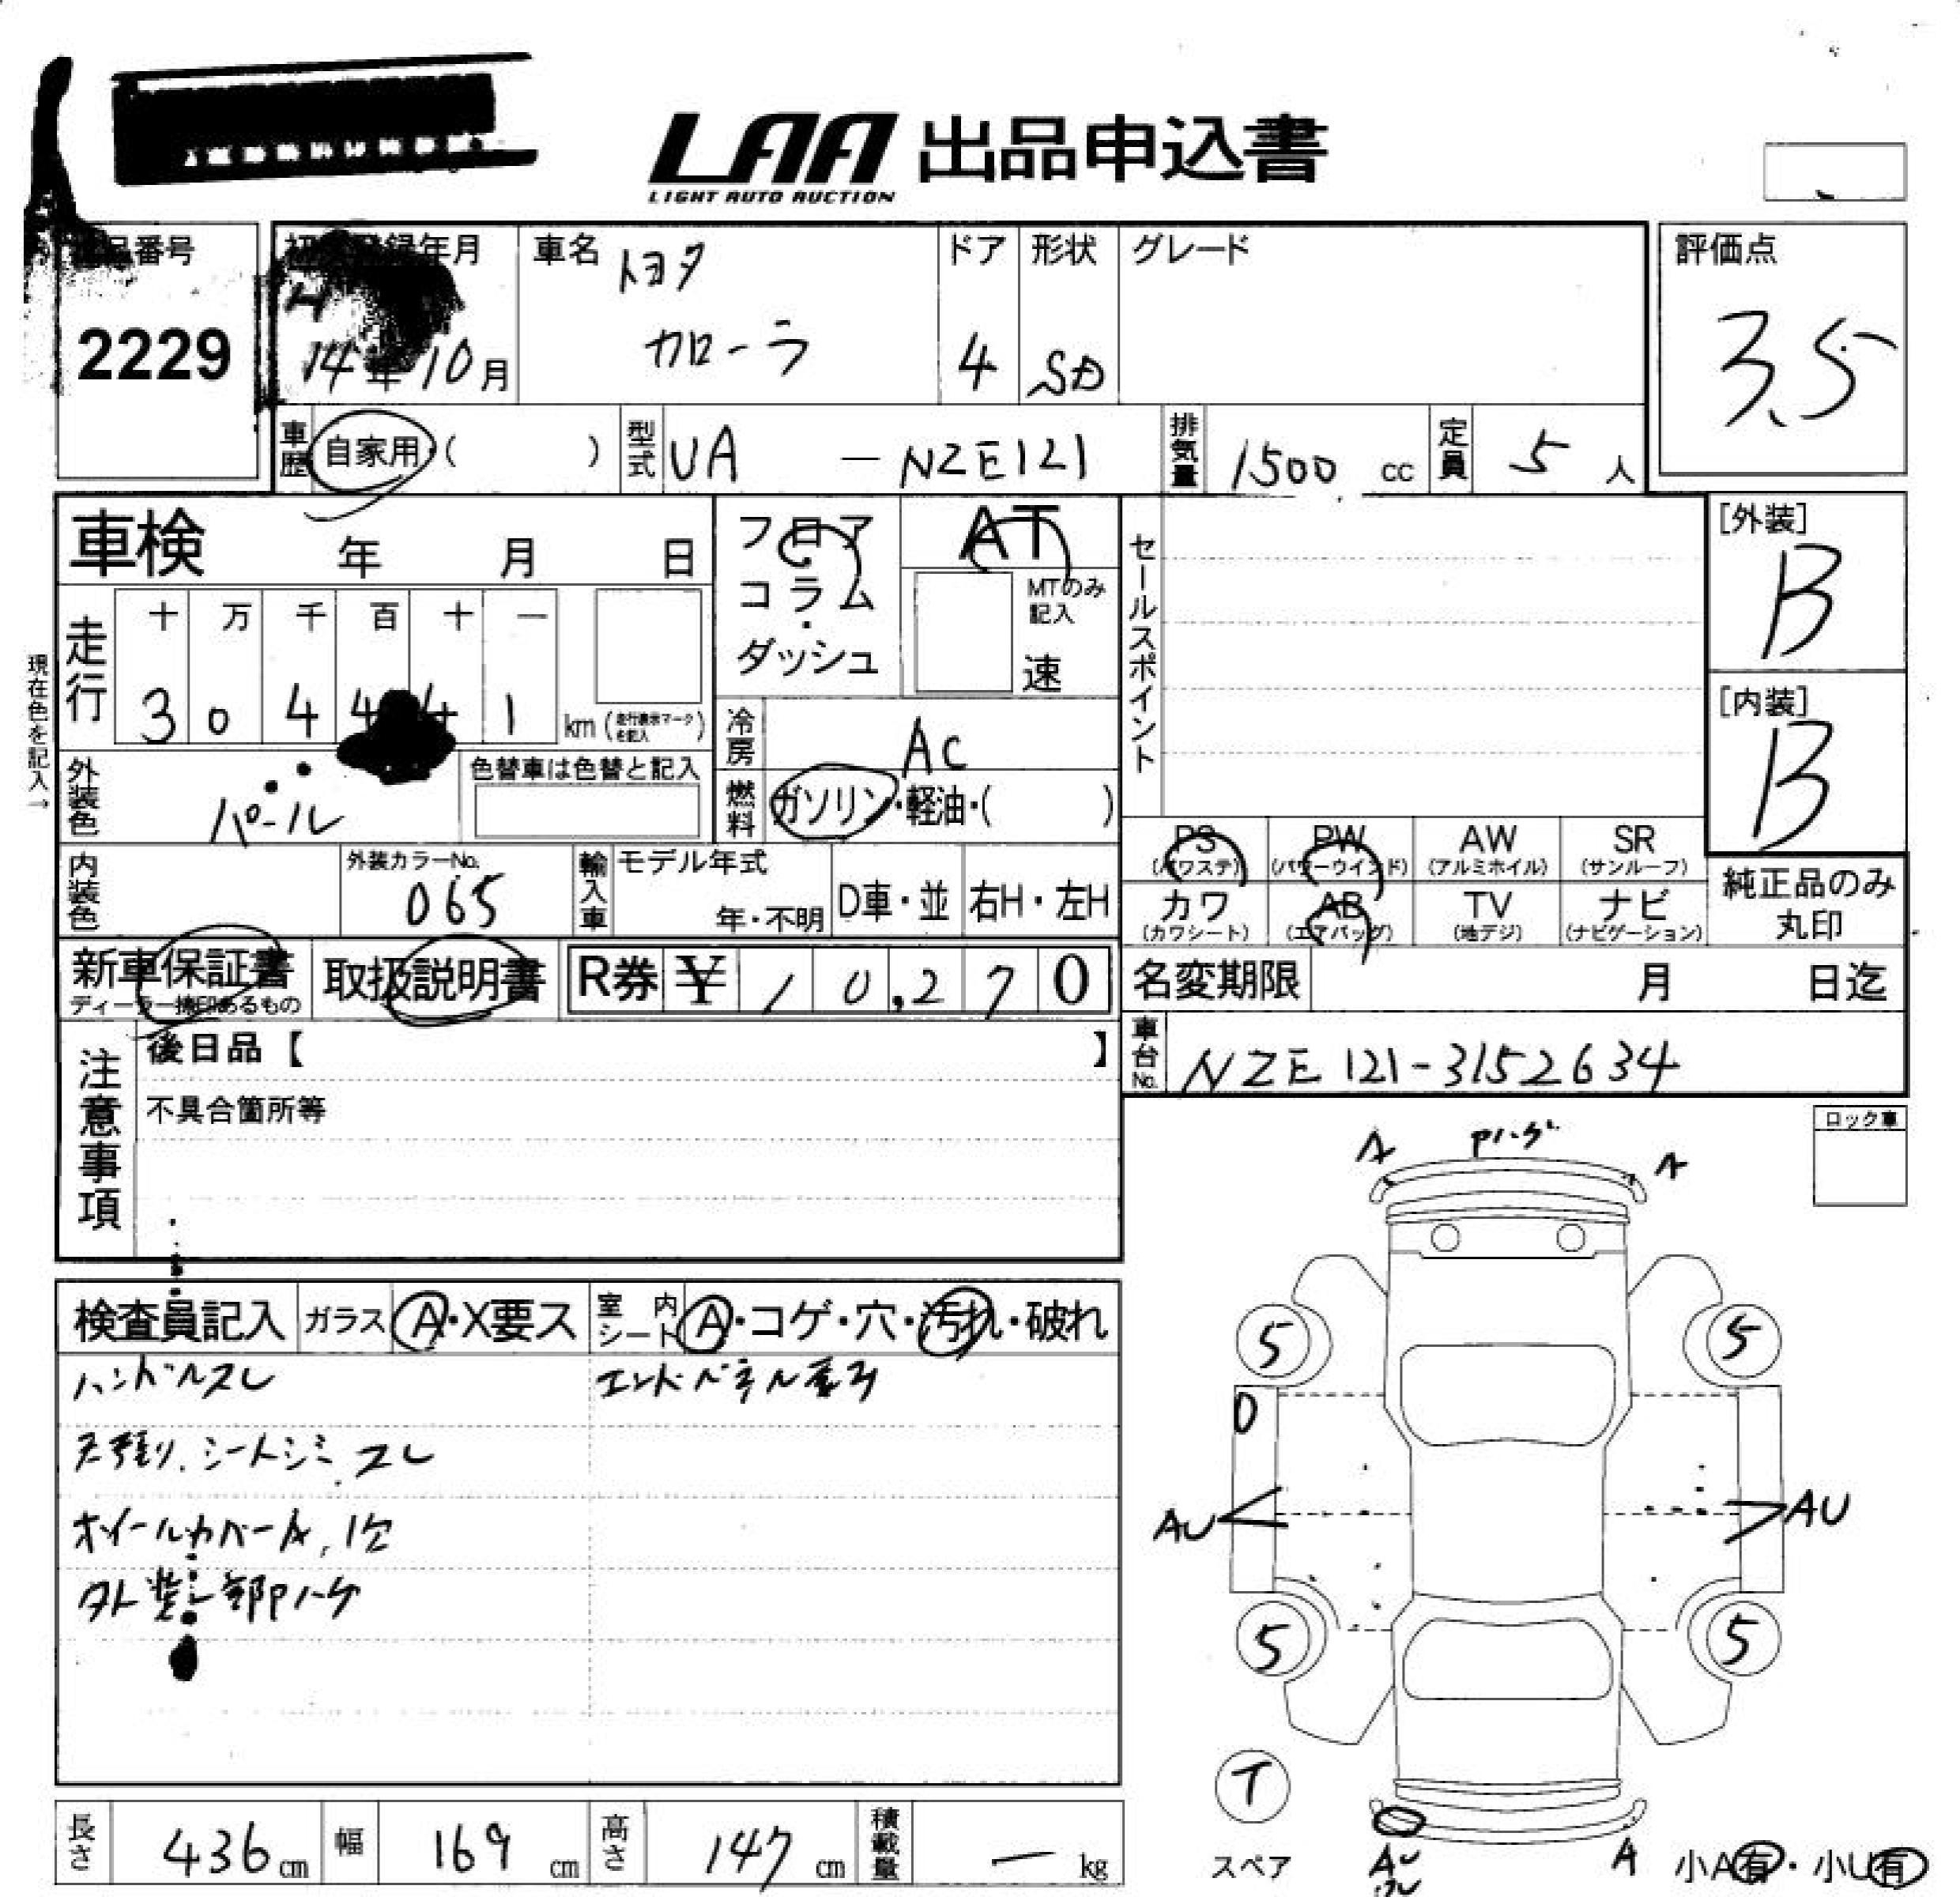 LAA 出品申込書
LIGHT AUTO AUCTION
品番号
2229
初 登録年月
H
14年10月
車名 トヨタ
カローラ
ドア
4
形状
SD
グレード
評価点
3.5
車歴 自家用・( )
型式 UA - NZE121
排気量 1500 cc
定員 5 人
車検 年 月 日
フロア
コラム
・
ダッシュ
AT
MTのみ
記入
速
セールスポイント
[外装]
B
[内装]
B
現在色を記入→
走行
十 万 千 百 十 一
3 0 4 4 4 1 km (走行表示マークを記入)
冷房 AC
燃料 ガソリン・軽油・( )
外装色 パール
色替車は色替と記入
内装色
外装カラーNo.
065
輸入車
モデル年式
年・不明
D車・並
右H・左H
PS
(パワステ)
PW
(パワーウインド)
AW
(アルミホイル)
SR
(サンルーフ)
カワ
(カワシート)
AB
(エアバッグ)
TV
(地デジ)
ナビ
(ナビゲーション)
純正品のみ
丸印
新車保証書
ディーラー捺印あるもの
取扱説明書
R券 ¥ 10,270
名変期限 月 日迄
車台No. NZE121-3152634
注意事項
後日品【 】
不具合箇所等
ロック車
A Pハゲ A
検査員記入
ガラス A・X要ス
室内シート A・コゲ・穴・汚れ・破れ
ハンドルスレ
エンドパネル歪み
天張り、シートシミ、スレ
ホイールカバーA、1欠
外装一部Pハゲ
5 5
D
AU AU
5 5
T
スペア
AU
A
小A有・小U有
長さ 436 cm
幅 169 cm
高さ 147 cm
積載量 — kg